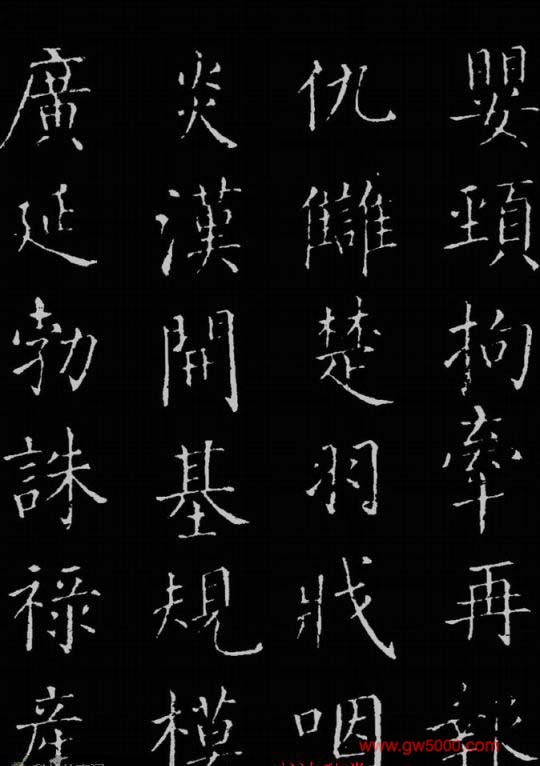 嬰頸拘牽再報
仇讎楚羽戕咽
炎漢開基規模
廣延勃誅祿産
www.gw5000.com